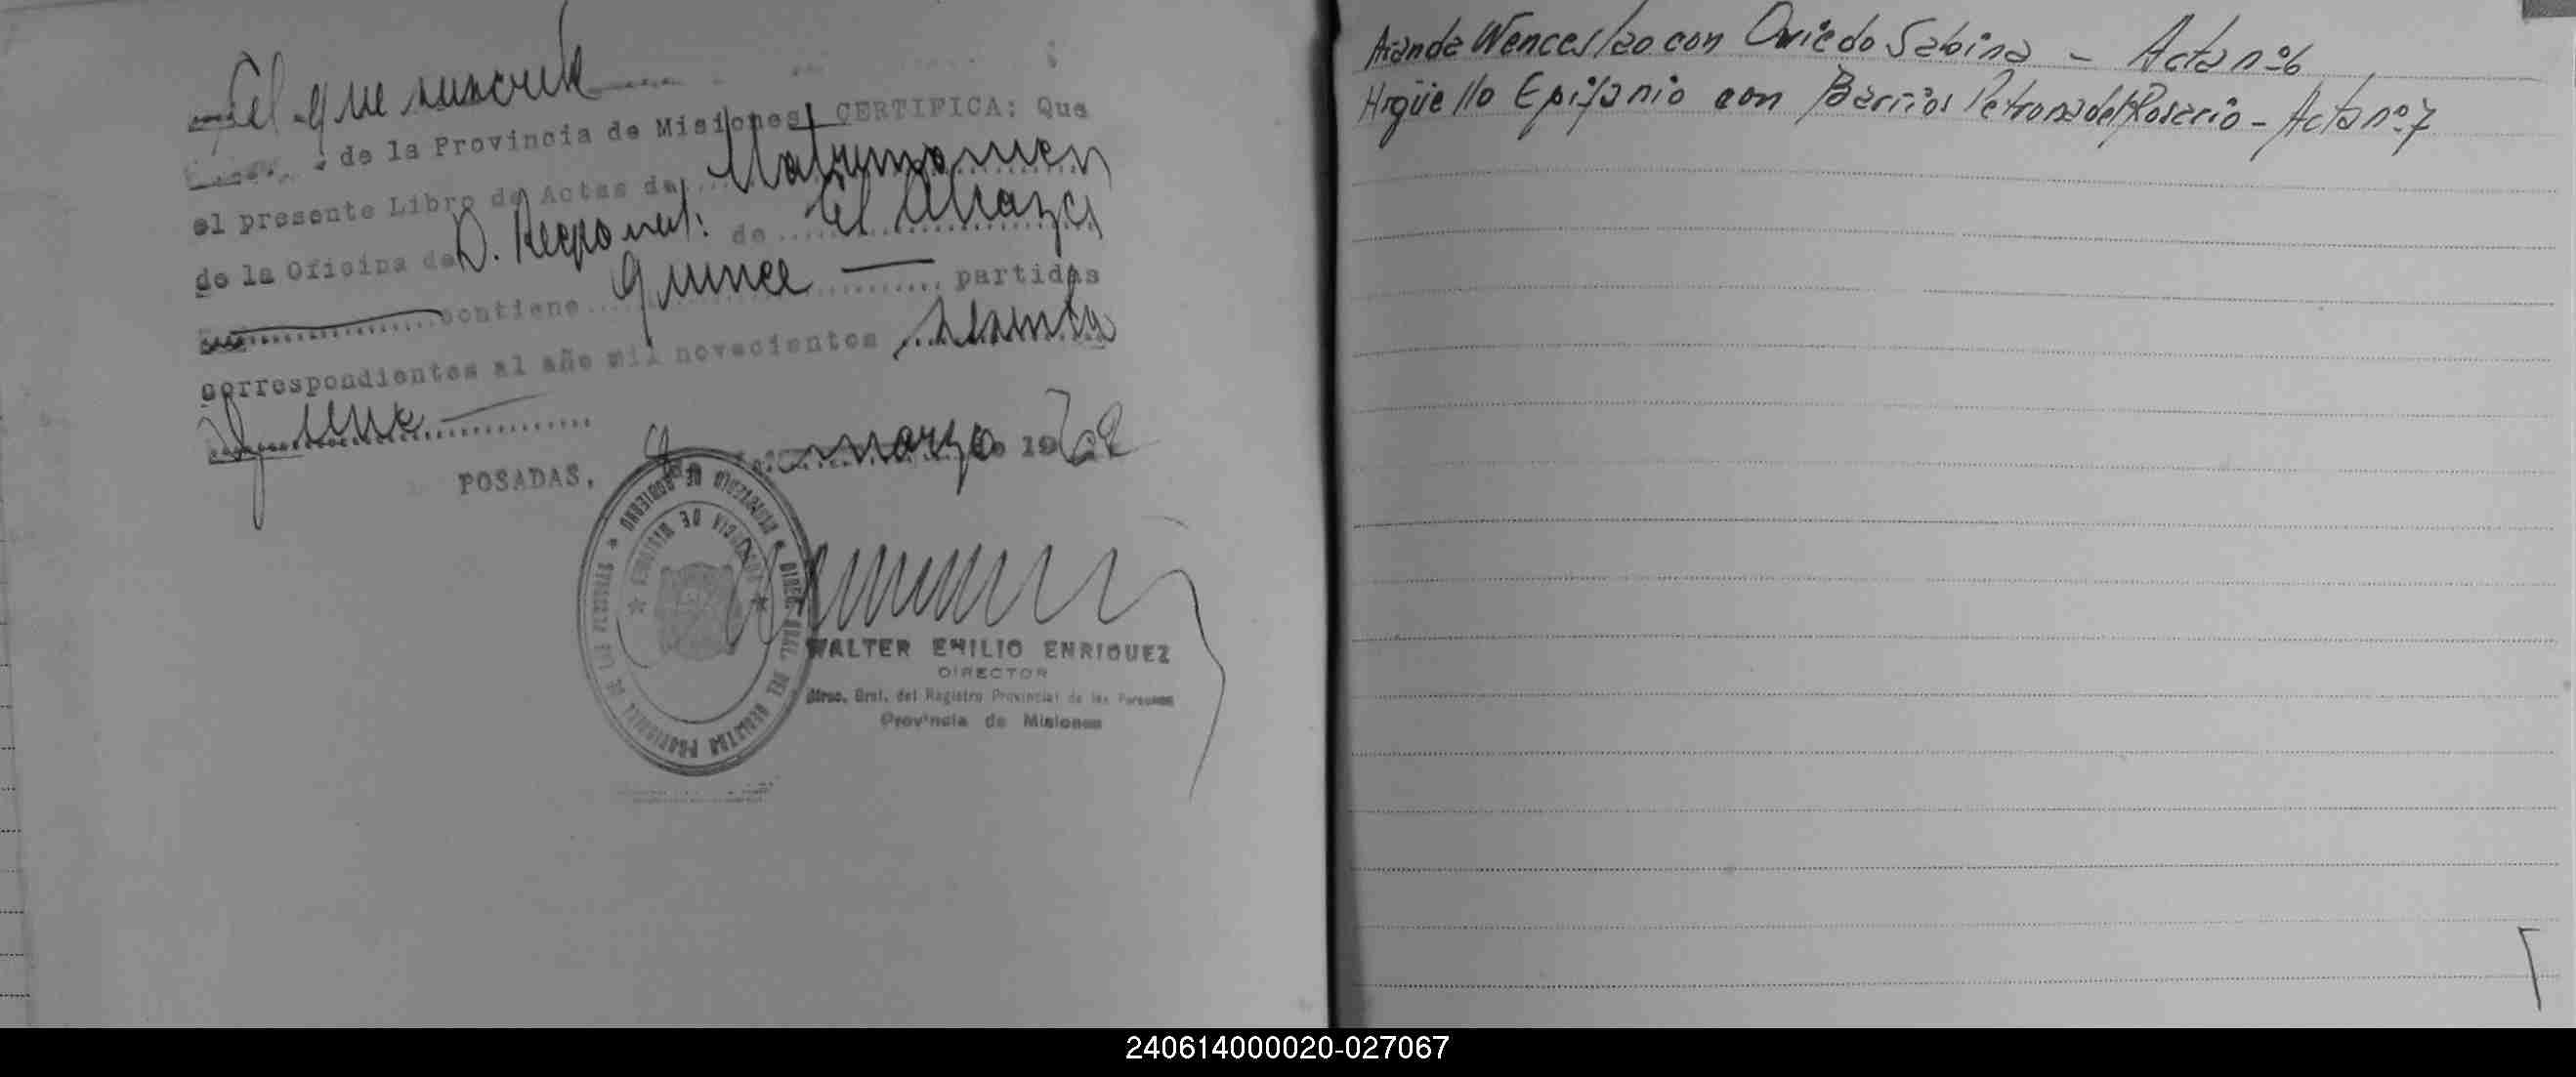 El que suscribe
de la Provincia de Misiones, CERTIFICA: Que
el presente Libro de Actas de Matrimonios
de la Oficina de D. Respons. de El Alcazar
contiene quince partidas
correspondientes al año mil novecientos sesenta
y uno
POSADAS, marzo 1962
PROVINCIA DE MISIONES
WALTER EMILIO ENRIQUEZ
DIRECTOR
Direc. Gral. del Registro Provincial de las Personas
Provincia de Misiones
Aranda Wenceslao con Oviedo Sabina - Acta nº 6
Argüello Epifanio con Barrios Petrona del Rosario - Acta nº 7
240614000020-027067